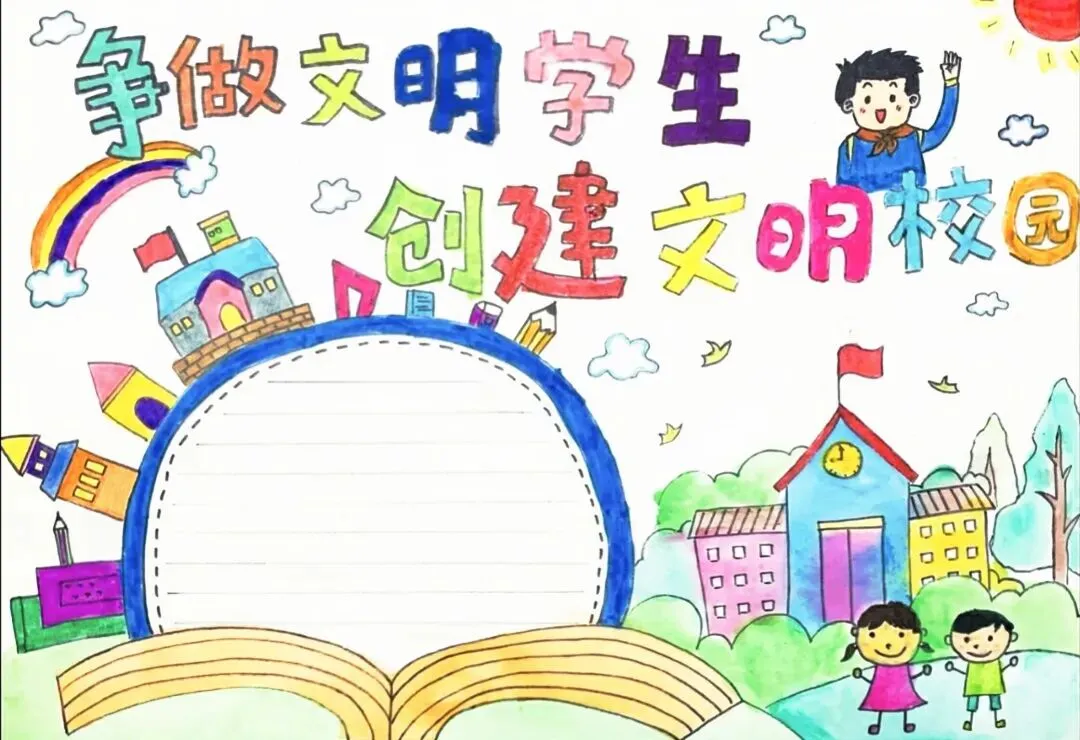 争做文明学生
创建文明校园